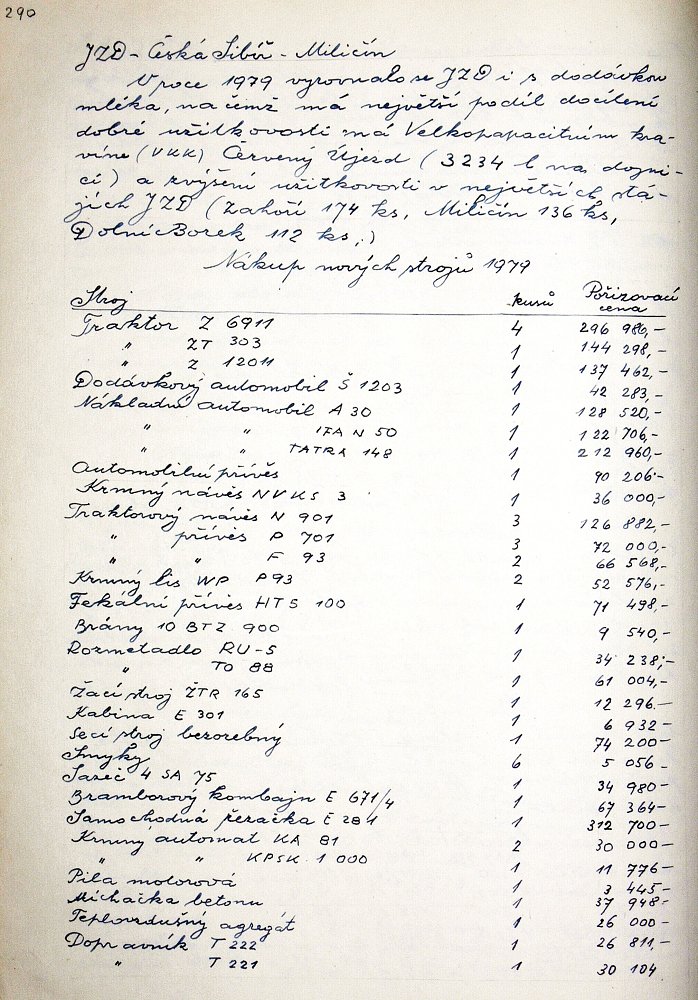 290
JZD - Česká Sibiř - Miličín
V roce 1979 vyrovnalo se JZD i s dodávkou
mléka, na čemž má největší podíl docílení
dobré užitkovosti má Velkopapacitním kra-
víně (VKK) Červený Újezd (3234 l na dojni-
ci) a zvýšení užitkovosti v největších stá-
jích JZD (Zahoří 174 ks, Miličín 136 ks,
Dolní Borek 112 ks,)
Nákup nových strojů 1979
Stroj kusů Pořizovací cena
Traktor Z 6911 4 296 986,-
" ZT 303 1 144 298,-
" Z 12011 1 137 462,-
Dodávkový automobil Š 1203 1 42 283,-
Nákladní automobil A 30 1 128 520,-
" " IFA N 50 1 122 706,-
" " TATRA 148 1 212 960,-
Automobilní přívěs 1 90 206-
Krmný návěs NVKS 3 1 36 000,-
Traktorový návěs N 901 3 126 882,-
" přívěs P 701 3 72 000,-
" " F 93 2 66 568,-
Krmný lis WP P93 2 52 576,-
Fekální přívěs HTS 100 1 71 498,-
Brány 10 BTZ 900 1 9 540,-
Rozmetadlo RU-5 1 34 238,-
" TO 88 1 61 004,-
Žací stroj ŽTR 165 1 12 296.-
Kabina E 301 1 6 932-
Secí stroj bezorebný 1 74 200-
Smyky 6 5 056-
Sazeč 4 SA 75 1 34 980-
Bramborový kombajn E 671/4 1 67 364-
Samochodná řezačka E 281 1 312 700-
Krmný automat KA 81 2 30 000-
" " KPSK 1 000 1 11 776-
Pila motorová 1 3 445-
Míchačka betonu 1 37 948-
Teplovzdušný agregát 1 26 000-
Dopravník T 222 1 26 811,-
" T 221 1 30 104